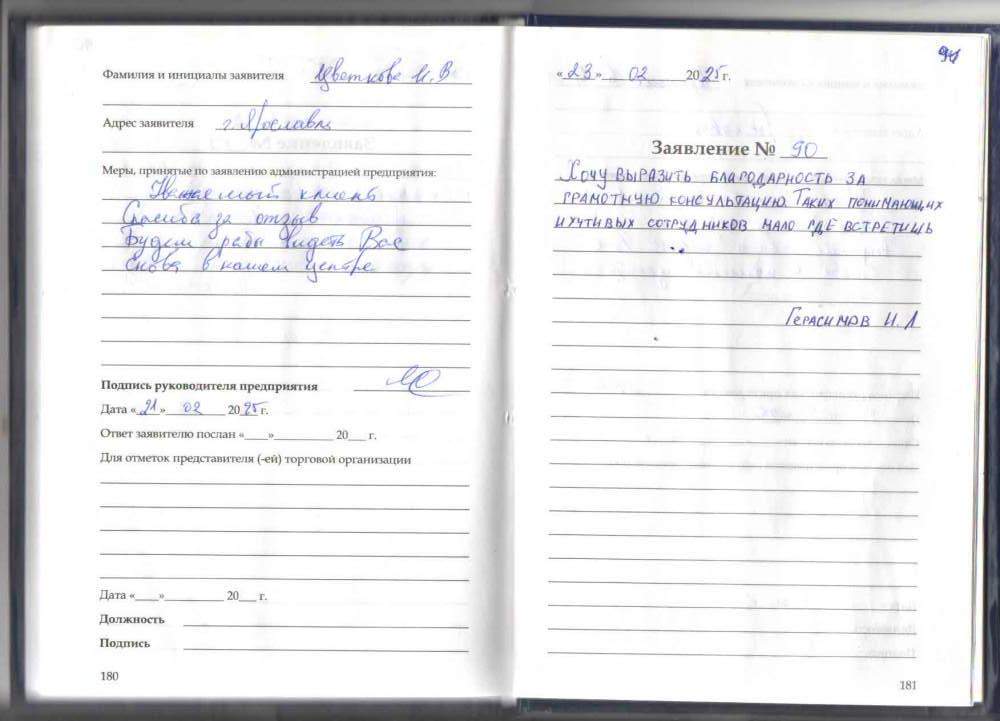 Фамилия и инициалы заявителя Цветкова И. В
Адрес заявителя г. Ярославль
Меры, принятые по заявлению администрацией предприятия:
Уважаемый клиент
Спасибо за отзыв
Будем рады видеть Вас
снова в нашем центре
Подпись руководителя предприятия
Дата «21» 02 2025 г.
Ответ заявителю послан «___»__________ 20___ г.
Для отметок представителя (-ей) торговой организации
Дата «___»__________ 20___ г.
Должность
Подпись
180
91
«23» 02 2025 г.
Заявление № 90
Хочу выразить благодарность за
грамотную консультацию. Таких понимающих
и учтивых сотрудников мало где встретишь
Герасимов И. Л
181